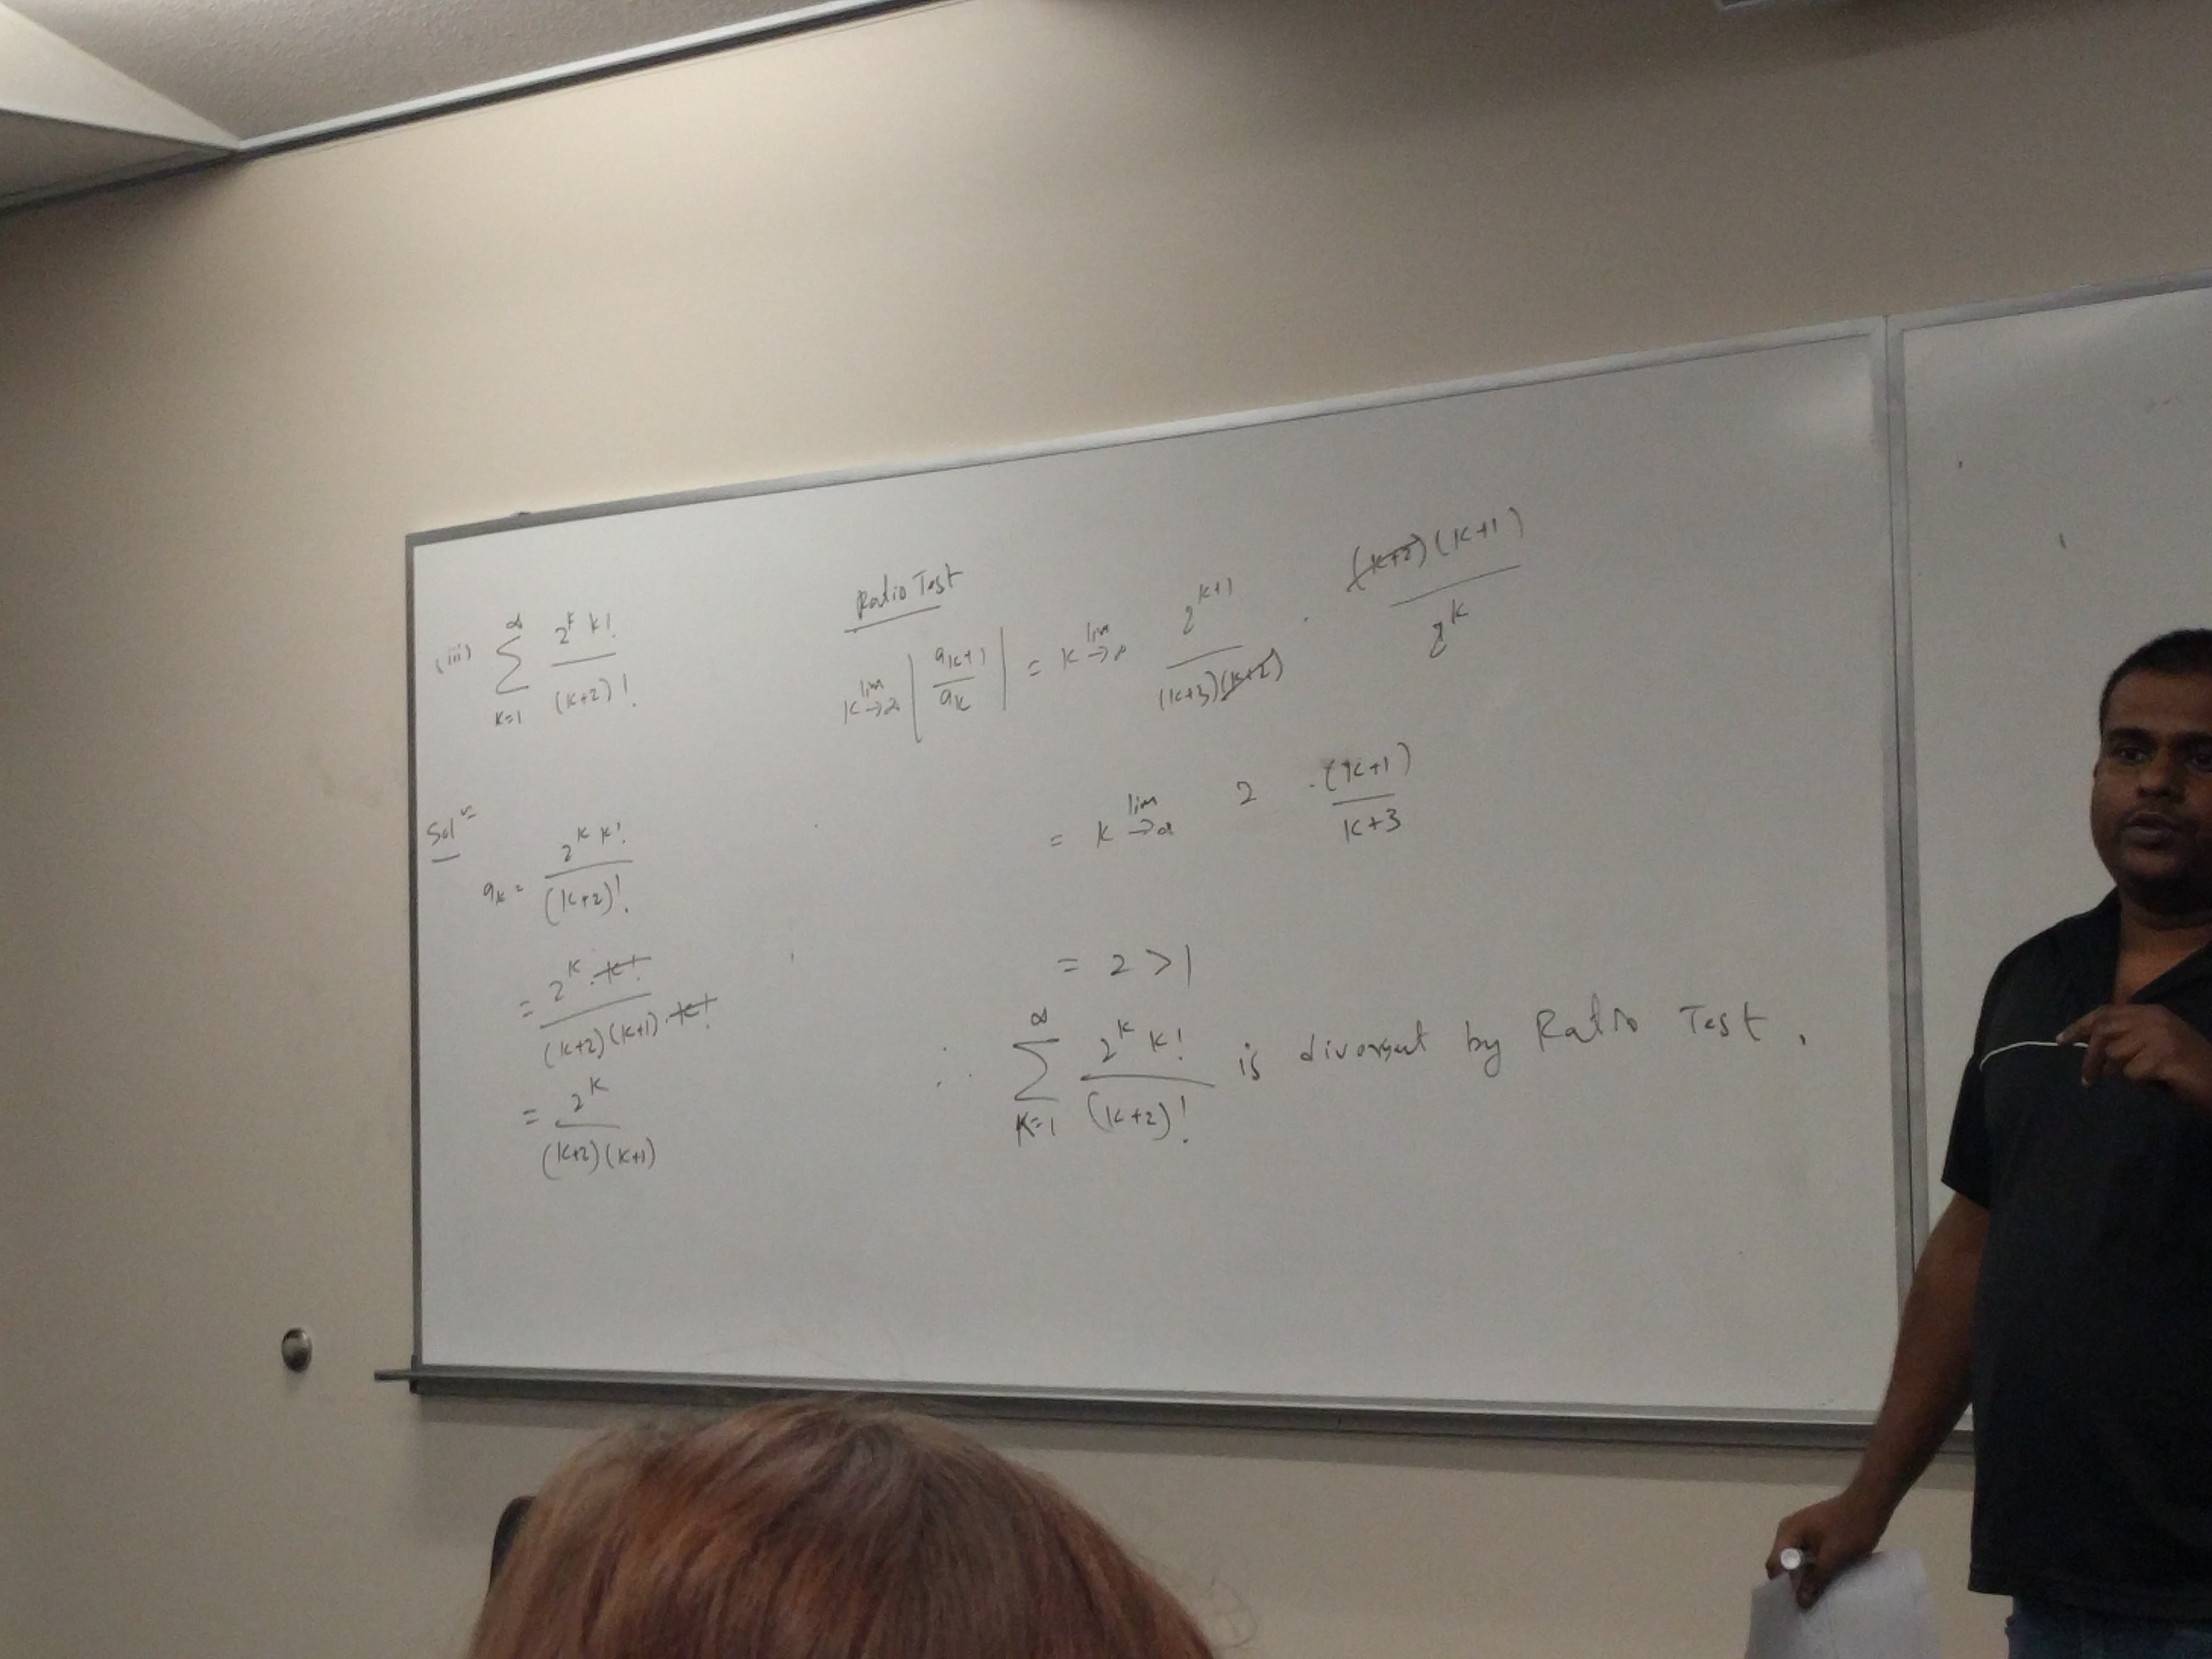 (iii) ∞ ∑ k=1 2^k k! / (k+2)!
Sol^n
a_k = 2^k k! / (k+2)!
= 2^k · k! / (k+2)(k+1) · k!
= 2^k / (k+2)(k+1)
Ratio Test
lim k→∞ | a_k+1 / a_k | = lim k→∞ 2^k+1 / (k+3)(k+2) · (k+2)(k+1) / 2^k
= lim k→∞ 2 · (k+1) / k+3
= 2 > 1
∴ ∞ ∑ k=1 2^k k! / (k+2)! is divergent by Ratio Test.